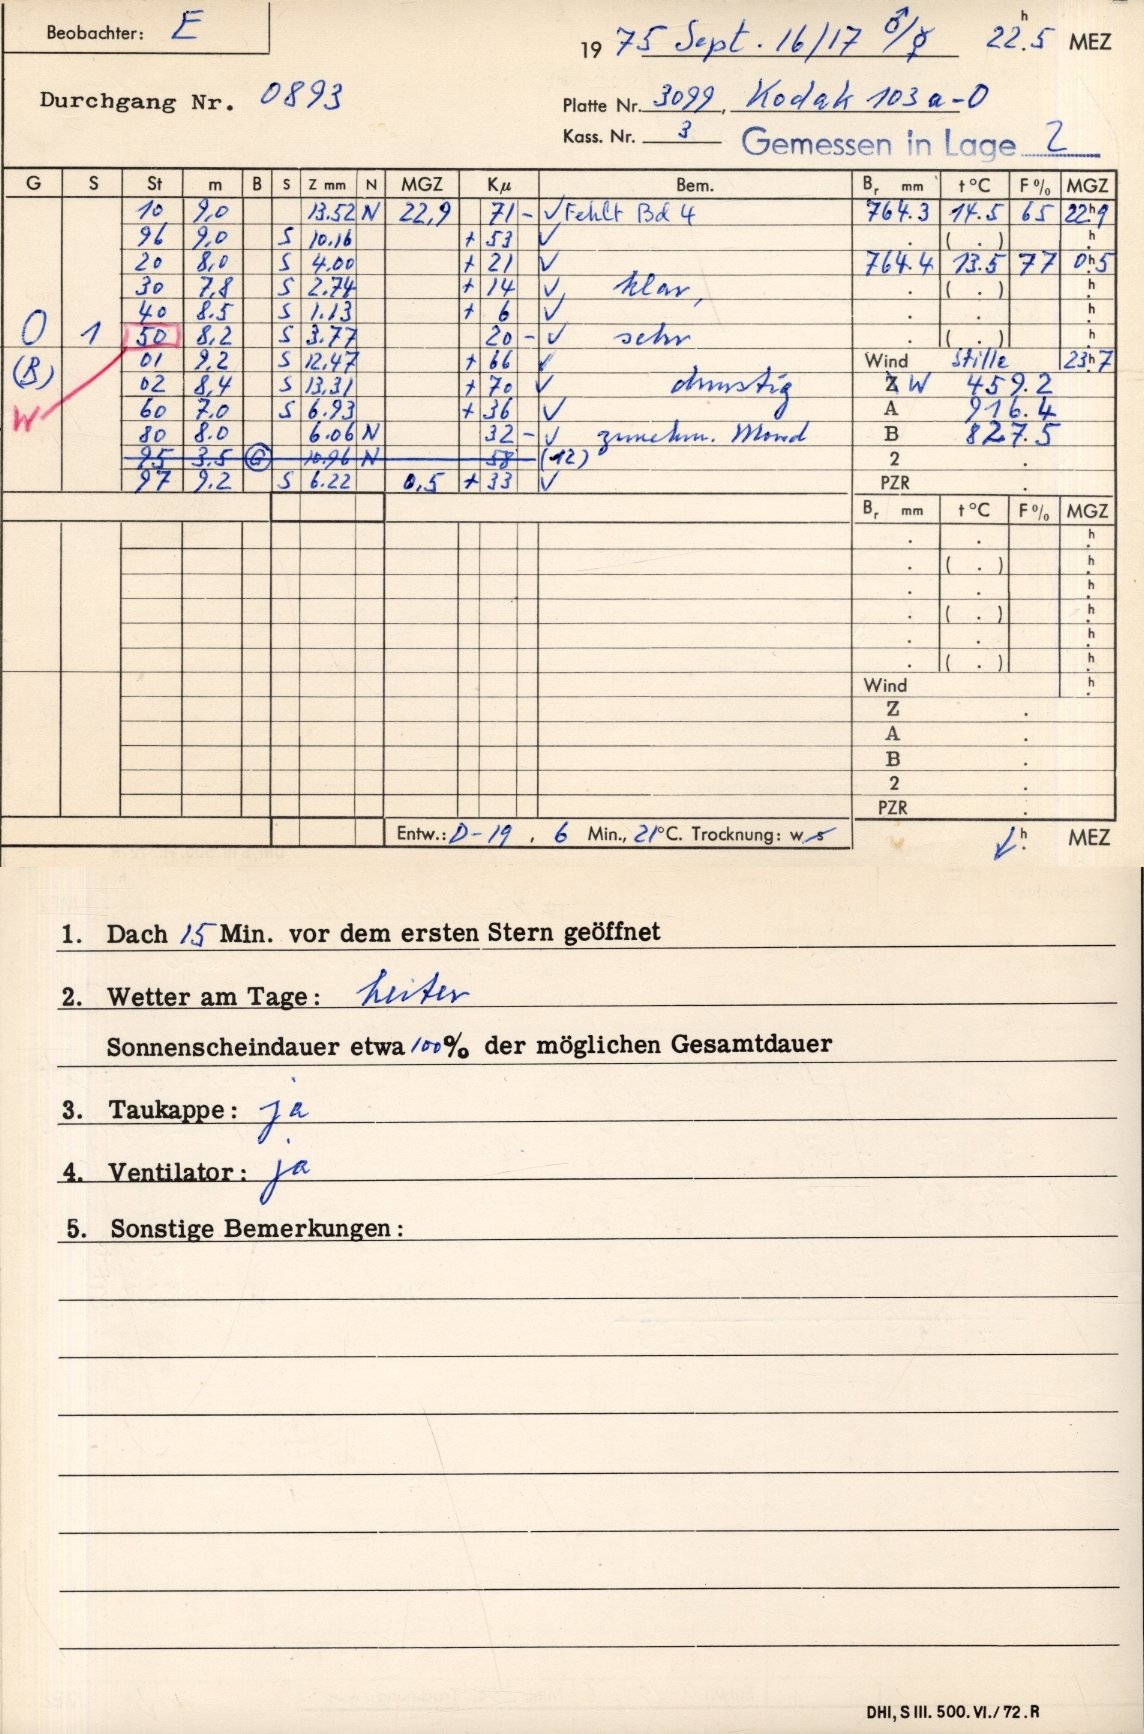 Beobachter: E
1975 Sept. 16/17 ♂/☿ 22.ʰ5 MEZ
Durchgang Nr. 0893
Platte Nr. 3099, Kodak 103a-O
Kass. Nr. 3 Gemessen in Lage 2
G S St m B S Z mm N MGZ Kμ Bem. Bᵣ mm t °C F% MGZ
10 9,0 13.52 N 22,9 71 - ✓ Fehlt Bd 4 764.3 14.5 65 22ʰ9
96 9,0 S 10.16 + 53 ✓ . ( . ) ʰ.
20 8,0 S 4.00 + 21 ✓ 764.4 13.5 77 0ʰ5
30 7,8 S 2.74 + 14 ✓ klar, . ( . ) ʰ.
40 8.5 S 1.13 + 6 ✓ . . ʰ.
0 1 50 8,2 S 3.77 20 - ✓ sehr . ( . ) ʰ.
(B) 01 9.2 S 12.47 + 66 ✓ Wind Stille 23ʰ7
02 8,4 S 13.31 + 70 ✓ dunstig Z W 459.2
W 60 7.0 S 6.93 + 36 ✓ A 916.4
80 8.0 6.06 N 32 - ✓ zunehm. Mond B 827.5
95 3.5 G 10.96 N 58 - (12) 2 .
97 9.2 S 6.22 0,5 + 33 ✓ PZR .
Bᵣ mm t °C F% MGZ
. . ʰ.
. ( . ) ʰ.
. . ʰ.
. ( . ) ʰ.
. . ʰ.
. ( . ) ʰ.
Wind ʰ.
Z .
A .
B .
2 .
PZR .
Entw.: D-19, 6 Min., 21°C. Trocknung: w s
✓ ʰ. MEZ
1. Dach 15 Min. vor dem ersten Stern geöffnet
2. Wetter am Tage: heiter
Sonnenscheindauer etwa 100% der möglichen Gesamtdauer
3. Taukappe: ja
4. Ventilator: ja
5. Sonstige Bemerkungen:
DHI, S III. 500. VI./72. R